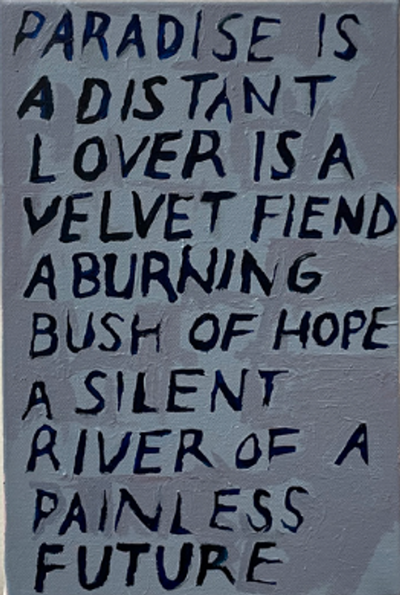 PARADISE IS
A DISTANT
LOVER IS A
VELVET FIEND
A BURNING
BUSH OF HOPE
A SILENT
RIVER OF A
PAINLESS
FUTURE